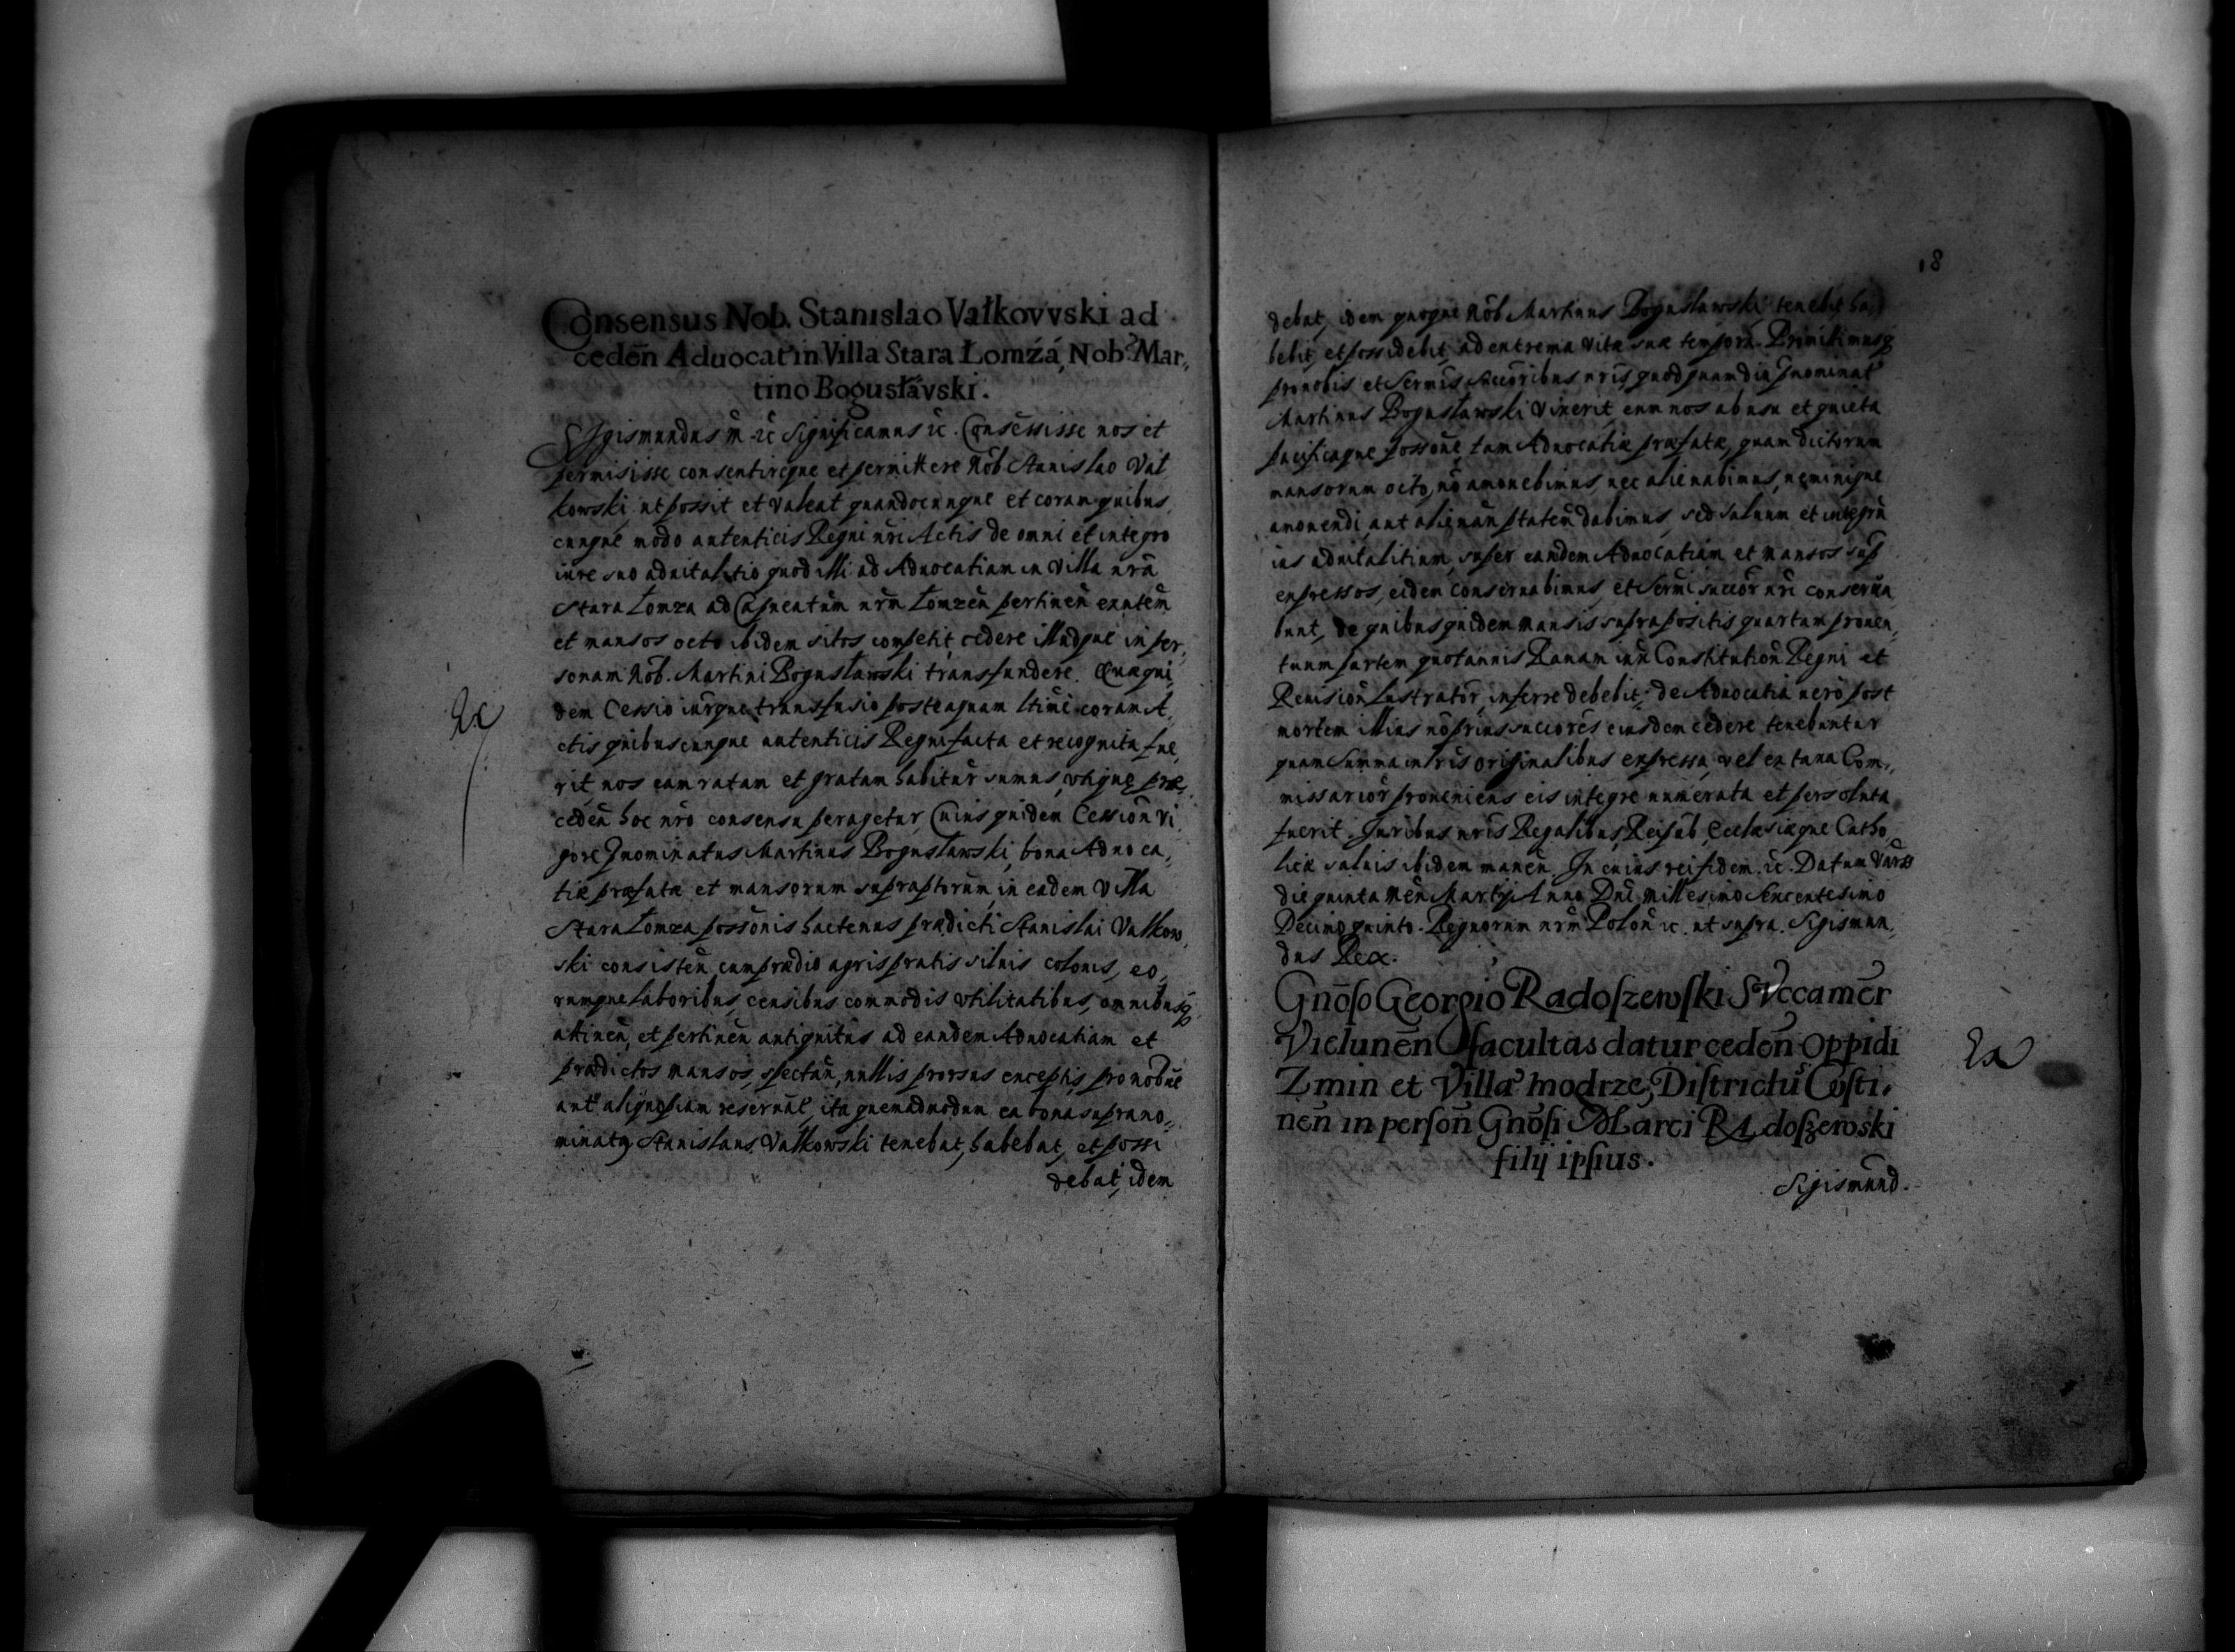 Consensus Nob. Stanislao Vałkovvski ad
cedeñ Aduocat in Villa Stara Łomźá, Nob. Mar,,
tino Bogusłavski.
Sigismundus m ꝛc Significamus ꝛc. Consensisse nos et
permisisse consentireque et permittere Nob Stanislao Vał
kowski, ut possit et valeat quandocunque et coram quibus,
cunque modo autenticis Regni nři Actis de omni et integro
iure suo aduitalitio quod illi ad Aduocatiam in Villa nrã
Stara Łomza ad Capneatũm nrm Łomzeñ pertineñ exntem
et mansos octo ibidem sitos competit, cedere illudque in per,
sonam Nob. Martini Bogusławski transfundere. Quaequi
dem Cessio iurque transfusio posteaquam ltimè coram A,
ctis quibuscunque autenticis Regni facta et recognita fue,
rit, nos eam ratam et gratam habitur sumus, utique præ,
cedeñ hoc nro consensu peragetur, Cuius quidem Cession vi
gore Jnominatus Martinus Bogusławski, bona Aduoca,
tiæ præfatæ et mansorum supraptorum, in eadem Villa
Stara Łomza possonis hactenus prædicti Stanislai Vałkow,
ski consisteñ, cum prædio agris pratis siluis colonis, eo,
rumque laboribus, censibus commodis vtilitatibus, omnibusq
attineñ, et pertineñ antiquitus ad eandem Aduocatiam et
prædictos mansos, spectañ, nullis prorsus exceptis, pro nob ne
aut aliquopiam reseruat, ita quemadmodum ea bona suprano,,
minatq Stanislaus Vałkowski tenebat, habebat, et possi
debat, idem
18
debat, idem quoque Nob Martinus Bogusławski tenebit ha,
bebit, et possidebit, ad extrema vitæ suæ tempora. Promittimusq
pro nobis et Sermis Succoribus nris, quod quamdiu Jnominat
Martinus Bogusławski vixerit, eum nos ab usu et quieta
pacificaque possone, tam Aduocatiæ præfatæ, quam dictorum
mansorum octo, nõ amouebimus, nec alienabimus, neminique
amouendi, aut alienañ ptatem dabimus, sed saluum et integrũ
ius aduitalitium, super eandem Aduocatiam et mansos sup
expressos, eidem conseruabimus, et Sermi succor nri conserua,
bunt, de quibus quidem mansis supra positis quartam prouen,
tuum partem quotannis Rauam iux Constitution Regni et
Reuision Lustrator, inferre debebit; de Aduocatia uero post
mortem illius nõ prius succores eiusdem cedere tenebuntur
quam Summa in lris originalibus expressa, vel ex taxa Com,,
missarior proueniens eis integre numerata et persoluta
fuerit. Juribus nris Regalibus, Reipub, Ecclesiæque Catho,
licæ saluis ibidem maneñ. In cuius rei fidem. ꝛc. Datum Vars
die quinta Meñ Martij Anno Dni millesimo Sexcentesimo
Decimo quinto. Regnorum nrm Poloñ ꝛc. ut supra. Sigismun,
dus Rex.
Gnõso Georgio Radoszewski SVccamer
Vielunẽn facultas datur cedeñ Oppidi
Zmin et Villæ modrze, Districtũ Costi,
neñ in persoñ Gnõsi Marci RAdoszewski
filij ipsius.
Sigismund.